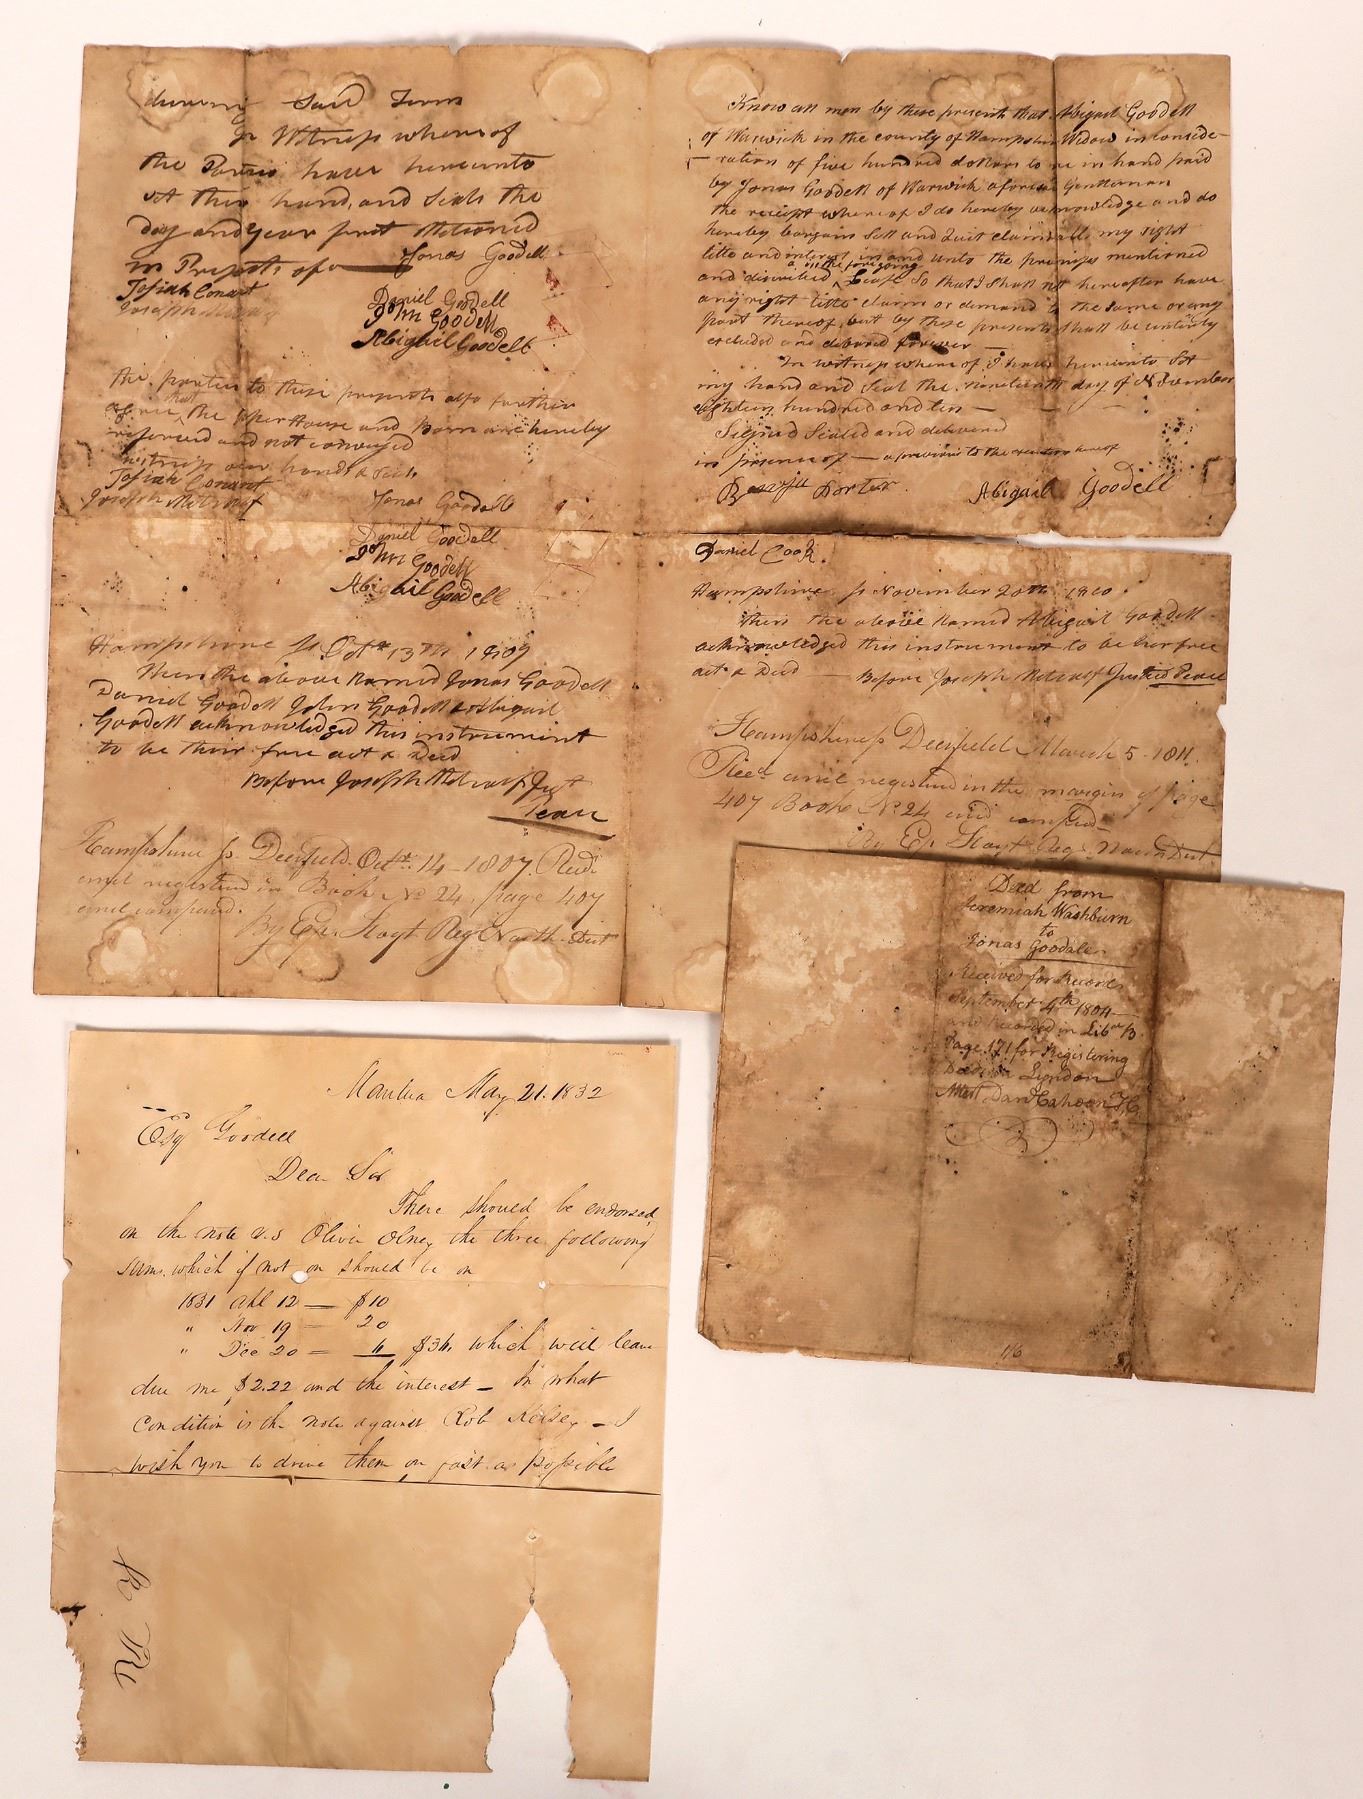 during Said Term
In Witness whereof
the Parties have hereunto
set their hand, and Seals the
day and year first Metioned
in Presents of
Jonas Goodell
Josiah Conant
Daniel Goodell
Joseph
John Goodell
Abigail Goodell
the parties to these presents also further
agree that the uper House and Barn are hereby
referved and not conveyed
witness our hands & seals
Josiah Conant
Joseph Metcalf
Jonas Goodell
Daniel Goodell
John Goodell
Abigail Goodell
Hampshire Ss Octr 13th 1809
Then the above Named Jonas Goodell
Daniel Goodell John Goodell & Abigail
Goodell acknowledged this instrument
to be their free act & Deed
Before Joseph Metcalf Just
Peace
Hampshire Ss. Deerfield. Octr. 14 - 1807. Recd.
and registered in Book No 24, page 407
and compared.
By Ep. Hoyt Regr North. Dist
Know all men by these present that Abigail Goodell
of Warwick in the county of Hampshire Widow in conside-
-ration of five hundred dollars to me in hand paid
by Jonas Goodell of Warwick aforesd Gentleman
the receipt whereof I do hereby acknowledge and do
hereby bargain Sell and Quit claim all my right
title and interest in and unto the premises mentioned
and discribed in the foregoing Lease So that I Shall not hereafter have
any right title claim or demand to the Same or any
part thereof, but by these presents Shall be intirely
excluded and debared forever —
In witness where of I have hereunto Set
my hand and Seal the nineteenth day of November
eighteen hundred and ten —
Signed Sealed and delivered
in presence of —
Benjn Porter
Abigail Goodell
Daniel Cook.
Hampshire Ss November 20th 1810
Then the above Named Abigail Goodell
acknowledged this instrument to be her free
act & Deed — Before Joseph Metcalf Justice Peace
Hampshire Ss Deerfield March 5 - 1811.
Recd. and registered in the margin of page
407 Book No 24 and compared—
By Ep. Hoyt Regr North Dist.
Deed from
Jeremiah Washburn
to
Jonas Goodale
Received for Record
September 4th 1804
and Recorded in Libr B
Page 171 for Registering
Deeds in Lyndon
Attest Danl Cahoon T,C,
1/6
Mantua May 21. 1832
Esq Goodell
Dear Sir
There should be endorsed
on the note v.s Oliver Olney the three following
sums. which if not on should be on
1831 Apl 12 — $10
" Nov 19 — 20
" Dec 20 = 4 $34, which will leave
due me $2.22 and the interest — In what
Condition is the note against Rob Kelsey — I
wish you to drive them on fast as possible